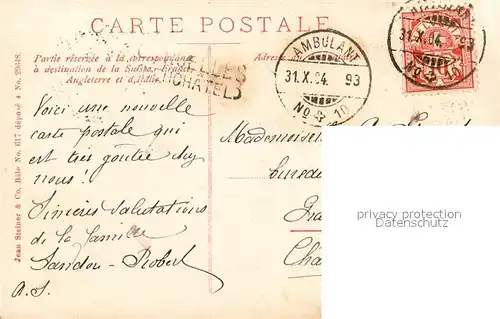 CARTE POSTALE
Partie réservée à la correspondance
à destination de la Suisse, France,
Angleterre et d'Italie.
Adresse
AMBULANT
31.X.04 93
No 10
31.X.04 93
No 10
CHÂTEL)
Jean Steiner & Co. Bâle No. 617 déposé 4 No. 29048
Voici une nouvelle
carte postale qui
est très goûtée chez
nous!
Sincères salutations
de la famille
Sandoz-Robert
A.S.
Mademoiselle
bureau
privacy protection
Datenschutz